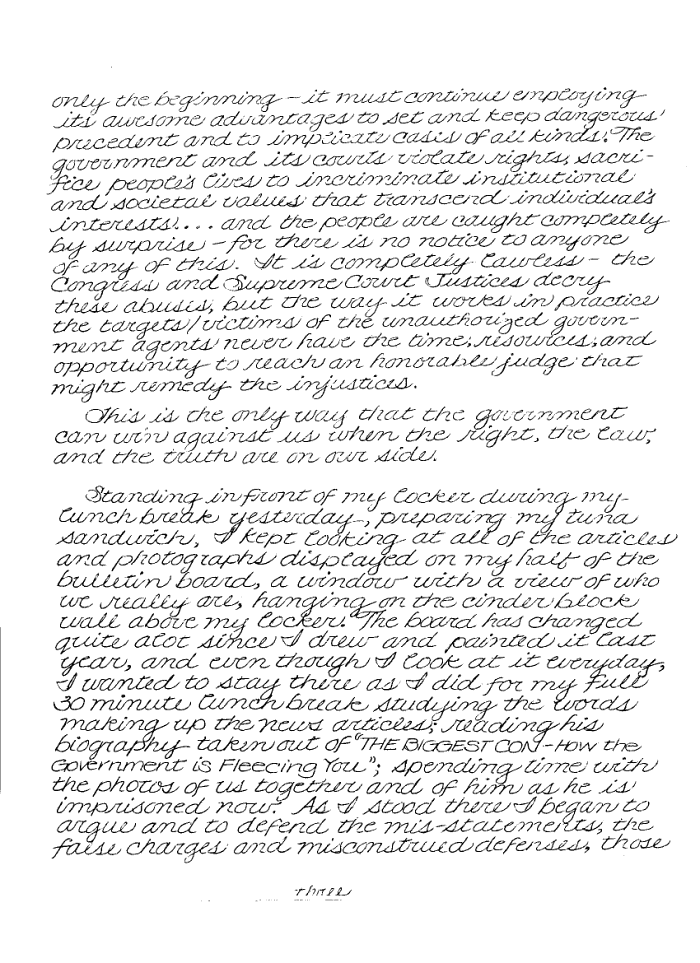 only the beginning – it must continue employing
its awesome advantages to set and keep dangerous
precedent and to implicate cases of all kinds. The
government and its courts violate rights, sacri-
fice people's lives to incriminate institutional
and societal values that transcend individual's
interests!... and the people are caught completely
by surprise – for there is no notice to anyone
of any of this. It is completely lawless – the
Congress and Supreme Court Justices decry
these abuses, but the way it works in practice
the targets/victims of the unauthorized govern-
ment agents never have the time, resources, and
opportunity to reach an honorable judge that
might remedy the injustices.
This is the only way that the government
can win against us when the right, the law,
and the truth are on our side.
Standing in front of my locker during my
lunch break yesterday, preparing my tuna
sandwich, I kept looking at all of the articles
and photographs displayed on my half of the
bulletin board, a window with a view of who
we really are, hanging on the cinder block
wall above my locker. The board has changed
quite alot since I drew and painted it last
year, and even though I look at it everyday,
I wanted to stay there as I did for my full
30 minute lunch break studying the words
making up the news articles; reading his
biography taken out of "THE BIGGEST CON – How the
Government is Fleecing You"; spending time with
the photos of us together and of him as he is
imprisoned now. As I stood there I began to
argue and to defend the mis-statements, the
false charges and misconstrued defenses, those
three